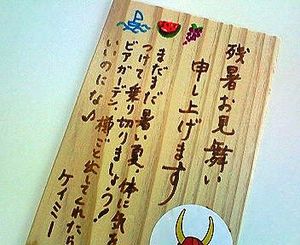 残暑お見舞い
申し上げます
まだまだ暑い夏、体に気を
つけて乗り切りましょう!
ビアガーデン、梯ごと出してくれたら
いいのにな
ケイミー